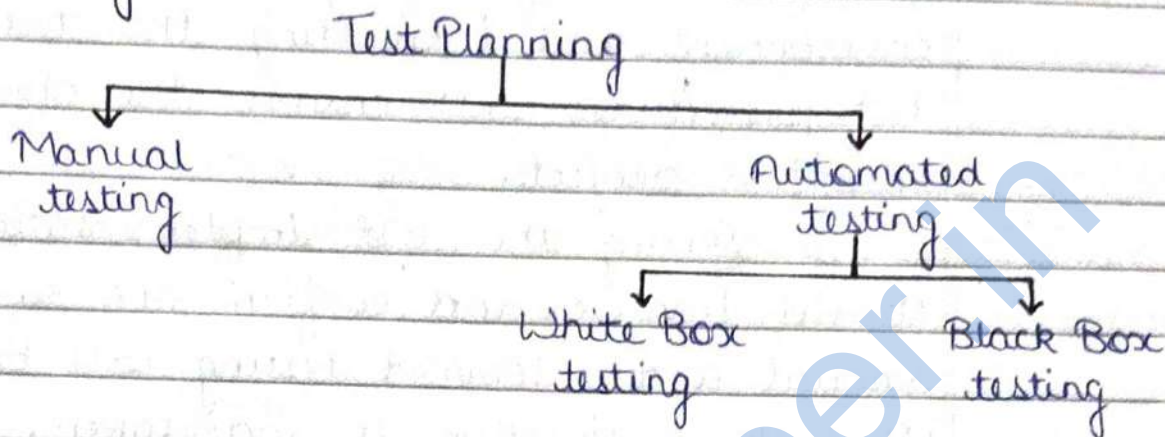 Test Planning
Manual
testing
Automated
testing
White Box
testing
Black Box
testing
er.in